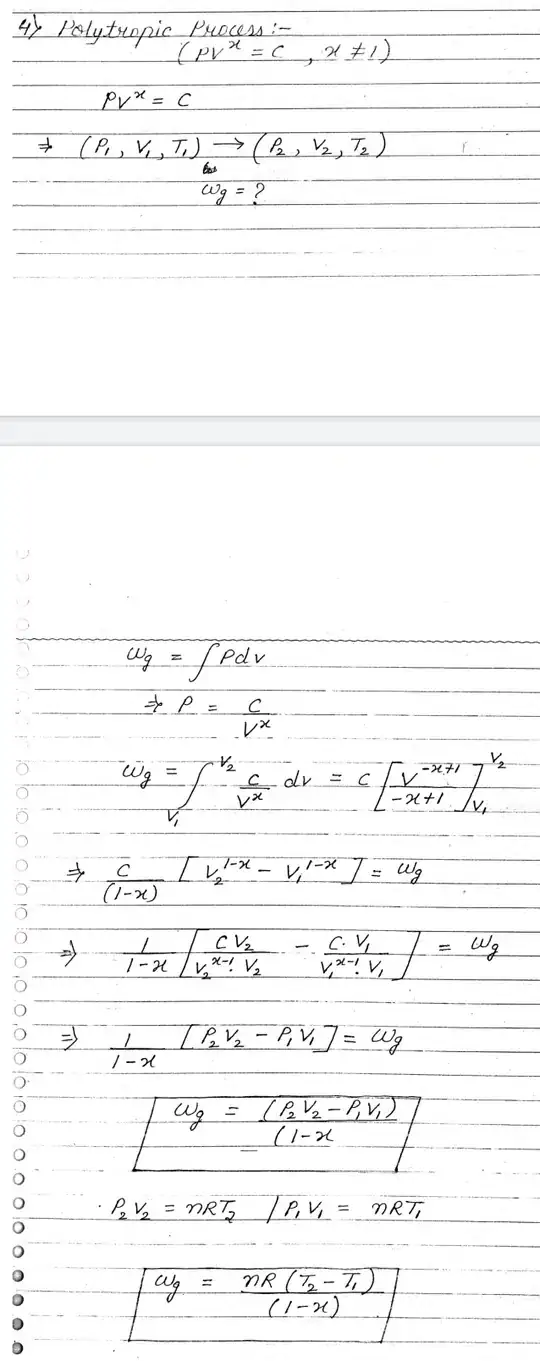 4) Polytropic Process:-
(PVˣ = C , x ≠ 1)
PVˣ = C
⇒ (P₁, V₁, T₁) → (P₂, V₂, T₂)
Wg = ?
Wg = ∫ Pdv
⇒ P = C/Vˣ
Wg = ∫_{V₁}^{V₂} C/Vˣ dv = C [V^{-x+1}/(-x+1)]_{V₁}^{V₂}
⇒ C/(1-x) [V₂^{1-x} - V₁^{1-x}] = Wg
⇒ 1/(1-x) [C V₂/(V₂^{x-1}. V₂) - C. V₁/(V₁^{x-1}. V₁)] = Wg
⇒ 1/(1-x) [P₂V₂ - P₁V₁] = Wg
Wg = (P₂V₂ - P₁V₁)/(1-x
P₂V₂ = nRT₂ / P₁V₁ = nRT₁
Wg = nR (T₂ - T₁)/(1-x)